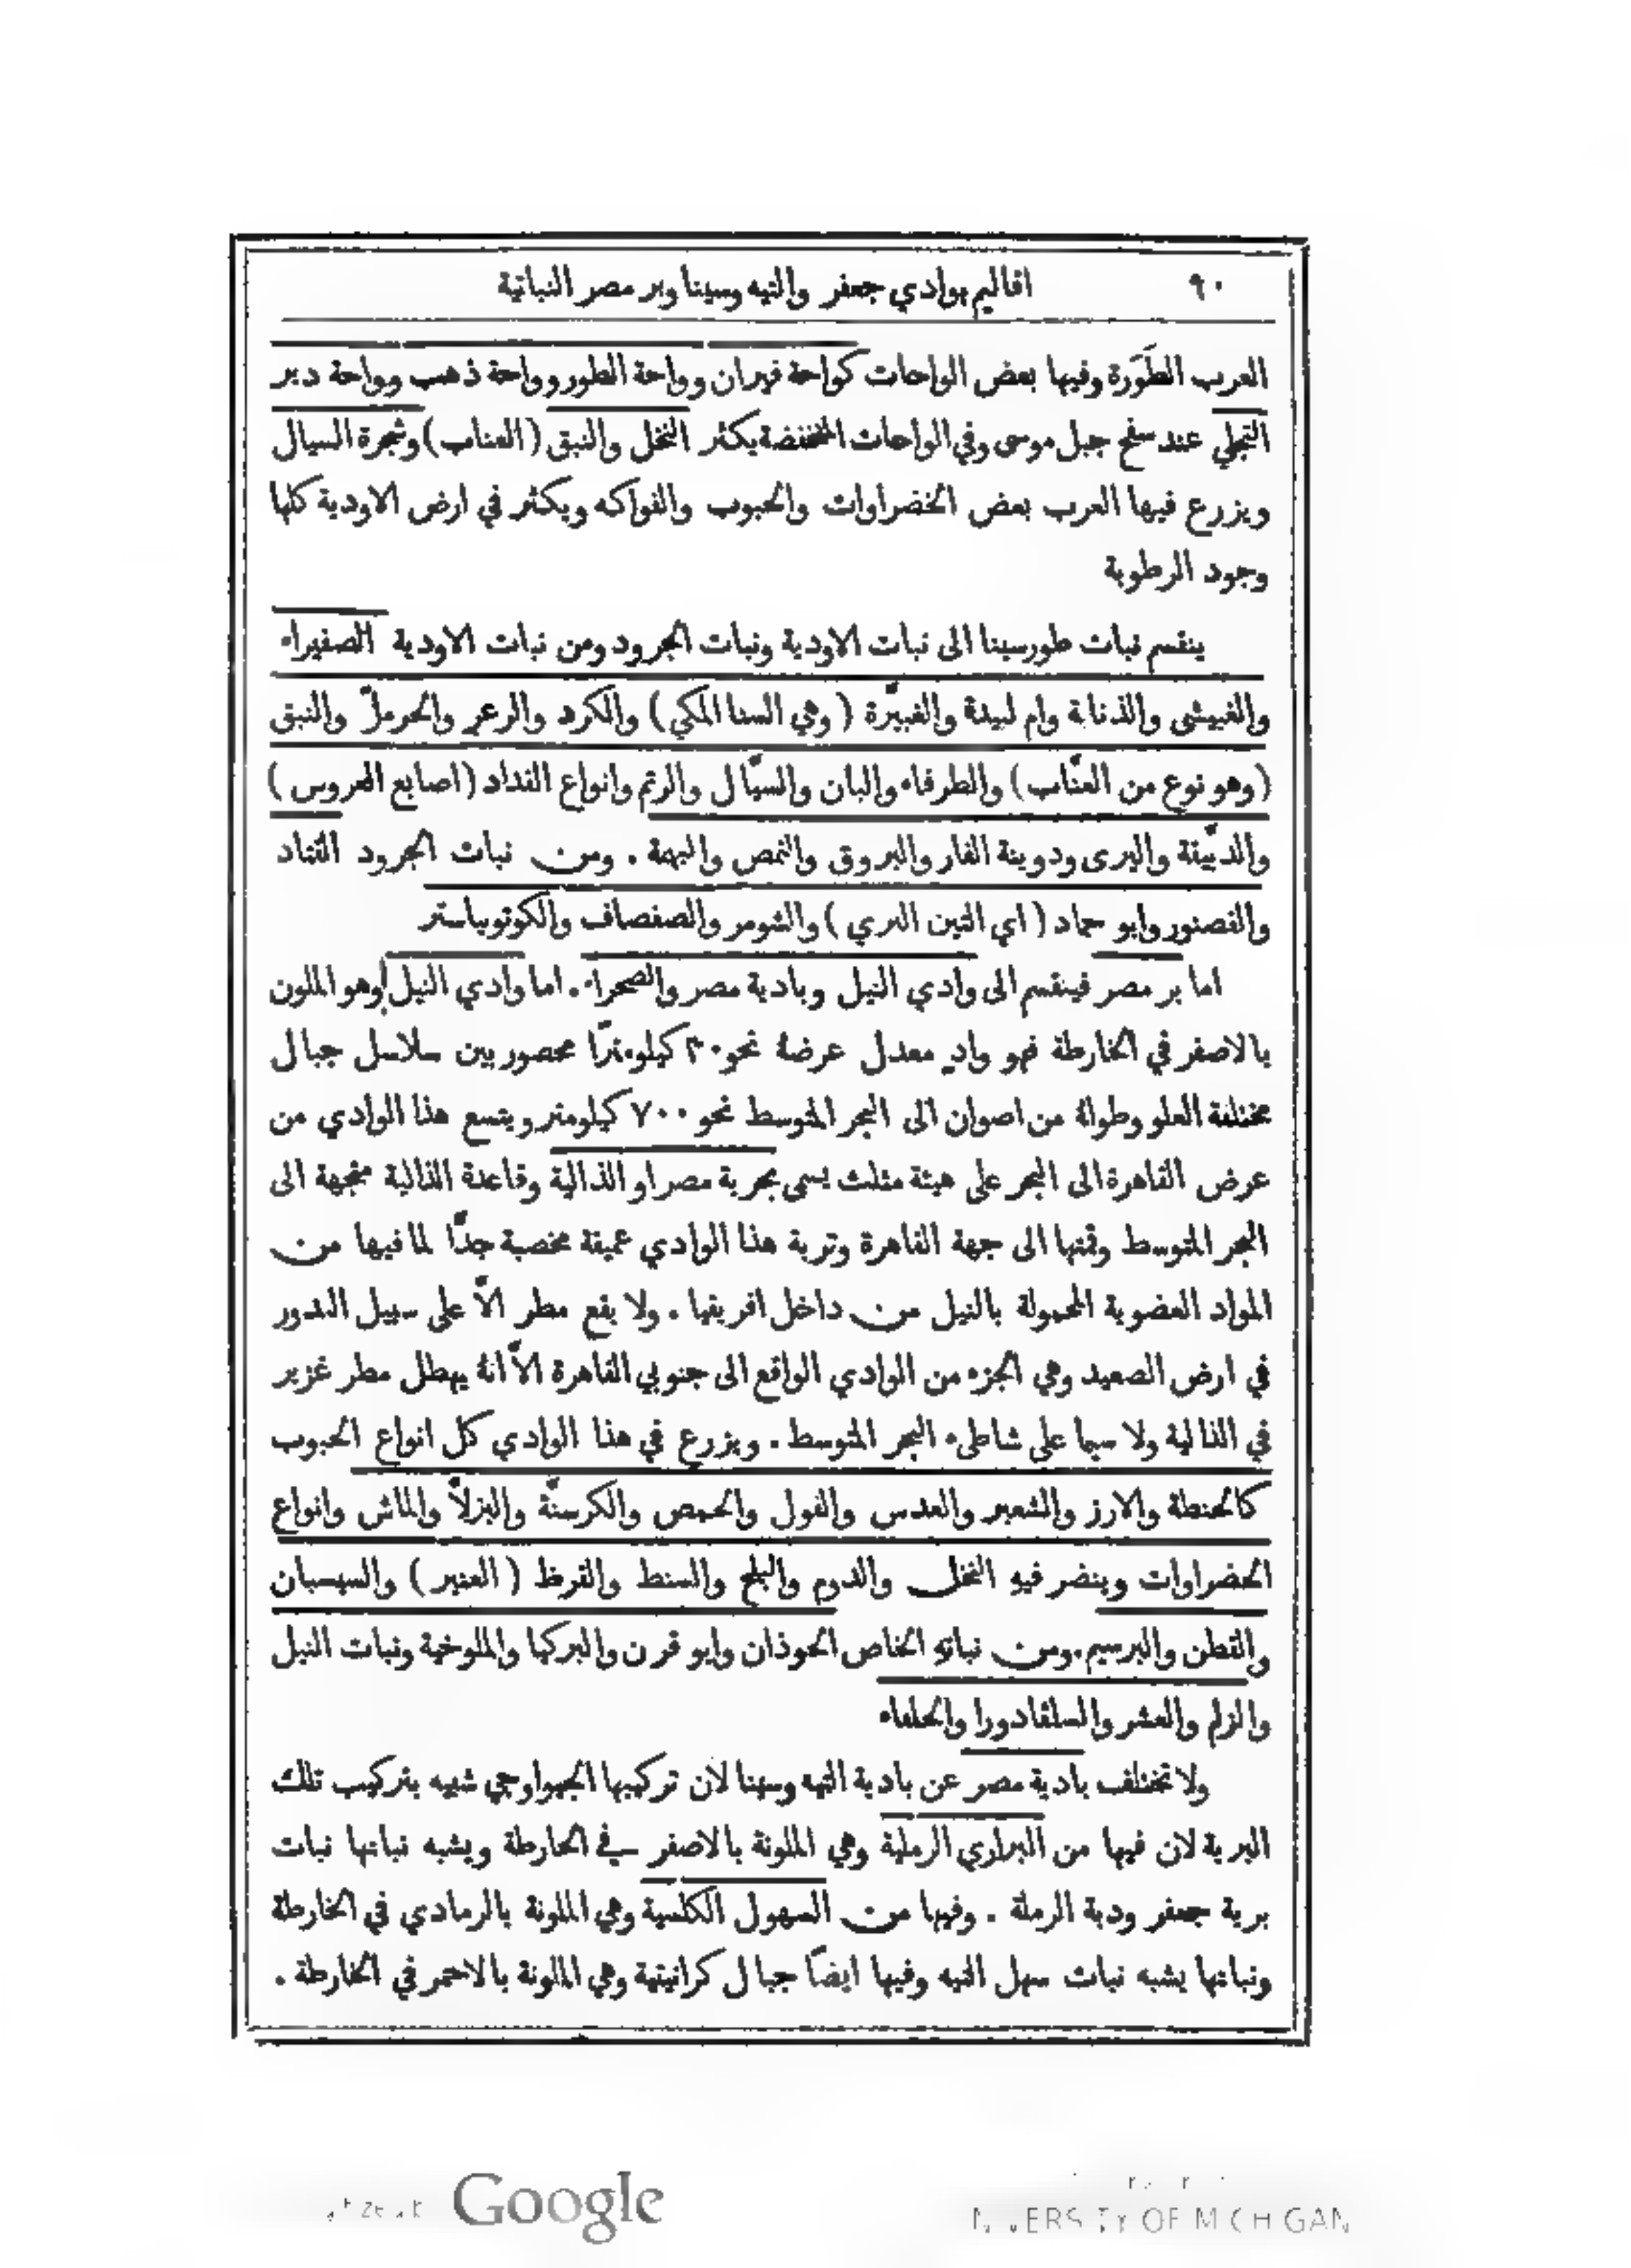 ٩٠
اقاليم بوادي جعفر والتيه وسينا وبر مصر النباتية
العرب الطَوَرة وفيها بعض الواحات كواحة فيران وواحة الطور وواحة ذهب وواحة دير
التجلي عند سفح جبل موسى وفي الواحات المنخفضة يكثر النخل والنبق (العناب) وشجرة السيال
ويزرع فيها العرب بعض الخضراوات والحبوب والفواكه ويكثر في ارض الاودية كلها
وجود الرطوبة
ينقسم نبات طورسينا الى نبات الاودية ونبات الجرود ومن نبات الاودية الصفيراء
والغبيشى والذنابة وام لبيدة والغبيّرة (وهي السنا المكي) والكرد والزعر والحرملّ والنبق
(وهو نوع من العنّاب) والطرفاء والبان والسيّال والرتم وانواع القتاد (اصابع العروس)
والدبّيقة واليرى ودوينة الفار والبروق والنمص والبهمة. ومن نبات الجرود القتاد
والقصنور وابو حماد (اي التين البري) والشومر والصفصاف والكوتوياستر
اما بر مصر فينقسم الى وادي النيل وبادية مصر والصحراء. اما وادي النيل وهو الملون
بالاصفر في الخارطة فهو وادٍ معدل عرضهُ نحو ٣٠ كيلومترًا محصور بين سلاسل جبال
مختلفة العلو وطولهُ من اصوان الى البحر المتوسط نحو ٧٠٠ كيلومتر ويتسع هذا الوادي من
عرض القاهرة الى البحر على هيئة مثلث يسمى بحرية مصر او الذالية وقاعدة الذالية متجهة الى
البحر المتوسط وقمتها الى جهة القاهرة وتربة هذا الوادي عميقة مخصبة جدًّا لما فيها من
المواد العضوية المحمولة بالنيل من داخل افريقيا. ولا يقع مطر الّا على سبيل الندور
في ارض الصعيد وهي الجزء من الوادي الواقع الى جنوبي القاهرة الّا انهُ يهطل مطر غزير
في الذالية ولا سيما على شاطىء البحر المتوسط. ويزرع في هذا الوادي كل انواع الحبوب
كالحنطة والارز والشعير والعدس والفول والحمص والكرسنّة والبزلّا والماش وانواع
الخضراوات وينضر فيهِ النخل والدوم والبلح والسنط والقرظ (العنبر) والسيسبان
والقطن والبرسيم. ومن نباتهِ الخاص الحوذان وابو قرن والبركيا والملوخية ونبات النيل
والزلم والعشر والسلفادورا والحلفاء
ولا تختلف بادية مصر عن بادية التيه وسينا لان تركيبها الجيولوجي شبيه بتركيب تلك
البرية لان فيها من البراري الرملية وهي الملونة بالاصفر في الخارطة ويشبه نباتها نبات
برية جعفر ودبة الرملة. وفيها من السهول الكلسية وهي الملونة بالرمادي في الخارطة
ونباتها يشبه نبات سهل التيه وفيها ايضًا جبال كرانيتية وهي الملونة بالاحمر في الخارطة.
Google
UNIVERSITY OF MICHIGAN